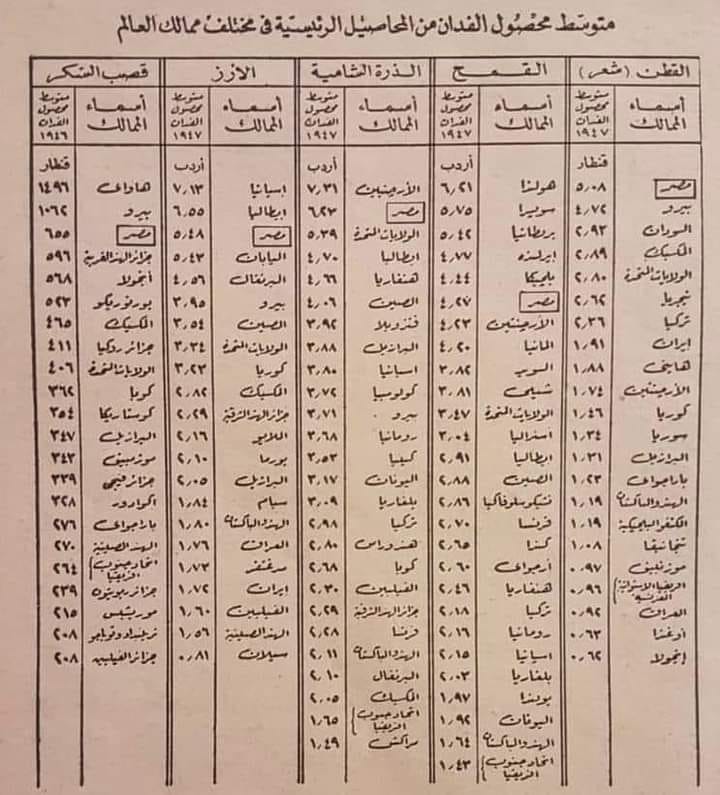 متوسط محصول الفدان من المحاصيل الرئيسية فى مختلف ممالك العالم
القطن (شعر) القمح الذرة الشامية الأرز قصب السكر
أسماء الممالك متوسط محصول الفدان ١٩٤٧ أسماء الممالك متوسط محصول الفدان ١٩٤٧ أسماء الممالك متوسط محصول الفدان ١٩٤٧ أسماء الممالك متوسط محصول الفدان ١٩٤٧ أسماء الممالك متوسط محصول الفدان ١٩٤٦
قنطار أردب أردب أردب قنطار
مصر ٥,٠٨ هولندا ٦,٢١ الأرجنتين ٧,٣١ اسبانيا ٧,١٣ هاواى ١٤٩٦
بيرو ٤,٧٢ سويسرا ٥,٧٥ مصر ٦,٢٣ ايطاليا ٦,٥٥ بيرو ١٠٦٢
السودان ٢,٩٣ بريطانيا ٥,٤٢ الولايات المتحدة ٥,٣٩ مصر ٥,٤٨ مصر ٦٥٥
المكسيك ٢,٨٩ ايرلنده ٤,٧٧ ايطاليا ٤,٧٠ اليابان ٥,٤٣ جزائر الهند الغربية ٥٩٦
الولايات المتحدة ٢,٨٠ بلجيكا ٤,٤٤ هنغاريا ٤,٦٦ البرتغال ٤,٥٦ أنجولا ٥٦٨
نيجريا ٢,٦٢ مصر ٤,٢٧ الصين ٤,٠٦ بيرو ٣,٩٥ بورتوريكو ٥٢٣
تركيا ٢,٣٦ الأرجنتين ٤,٢٣ فنزويلا ٣,٩٢ الصين ٣,٥٤ المكسيك ٤٦٥
ايران ١,٩١ المانيا ٤,٢٠ البرازيل ٣,٨٨ الولايات المتحدة ٣,٣٤ جزائر روكيا ٤١١
هايتى ١,٨٨ السويد ٣,٨٢ اسبانيا ٣,٨٠ كوريا ٣,٢٣ الولايات المتحدة ٤٠٦
الأرجنتين ١,٧٤ شيلى ٣,٨١ كولومبيا ٣,٧٢ المكسيك ٢,٨٢ كوبا ٣٦٢
كوريا ١,٤٦ الولايات المتحدة ٣,٤٧ بيرو ٣,٧١ جزائر الهند الشرقية ٢,٢٩ كوستاريكا ٣٥٤
سوريا ١,٣٤ استراليا ٣,٠٤ رومانيا ٣,٦٨ الملايو ٢,١٦ البرازيل ٣٤٧
البرازيل ١,٣١ ايطاليا ٢,٩١ كينيا ٣,٥٣ بورما ٢,١٠ موزمبيق ٣٤٣
باراجواى ١,٢٣ الصين ٢,٨٨ اليونان ٣,١٧ البرازيل ٢,٠٥ جزائر فيجى ٣٣٩
الهند والباكستان ١,١٩ تشيكوسلوفاكيا ٢,٨٦ بلغاريا ٣,٠٩ سيام ١,٨٤ اكوادور ٣٢٨
الكنغو البلجيكية ١,١٩ فرنسا ٢,٧٠ تركيا ٢,٩٨ الهند والباكستان ١,٨٠ باراجواى ٢٧٦
تنجانيقا ١,٠٨ كندا ٢,٦٥ هندوراس ٢,٨٠ العراق ١,٧٦ الهند الصينية ٢٧٠
موزنبيق ٠,٩٧ أرجواى ٢,٦٠ كوبا ٢,٦٨ مدغشقر ١,٧٣ اتحاد جنوب افريقيا ٢٦٤
افريقيا الاستوائية الفرنسية ٠,٩٦ هنغاريا ٢,٤٦ الفيليبين ٢,٣٠ ايران ١,٧٢ جزائر ريونيون ٢٣٩
العراق ٠,٩٢ تركيا ٢,١٨ جزائر الهند الشرقية ٢,٢٩ الفيليبين ١,٦٠ موريشيس ٢١٥
أوغندا ٠,٦٣ رومانيا ٢,١٦ فرنسا ٢,٢٨ الهند الصينية ١,٥٦ ترينيداد وتوباجو ٢٠٨
انجولا ٠,٦٢ اسبانيا ٢,١٥ الهند والباكستان ٢,١١ سيلان ٠,٨١ جزائر الفيليبين ٢٠٨
بلغاريا ٢,٠٣ البرتغال ٢,١٠
بولندا ١,٩٧ المكسيك ٢,٠٥
اليونان ١,٩٢ اتحاد جنوب افريقيا ١,٦٥
الهند والباكستان ١,٦٤ مراكش ١,٤٩
اتحاد جنوب افريقيا ١,٤٣